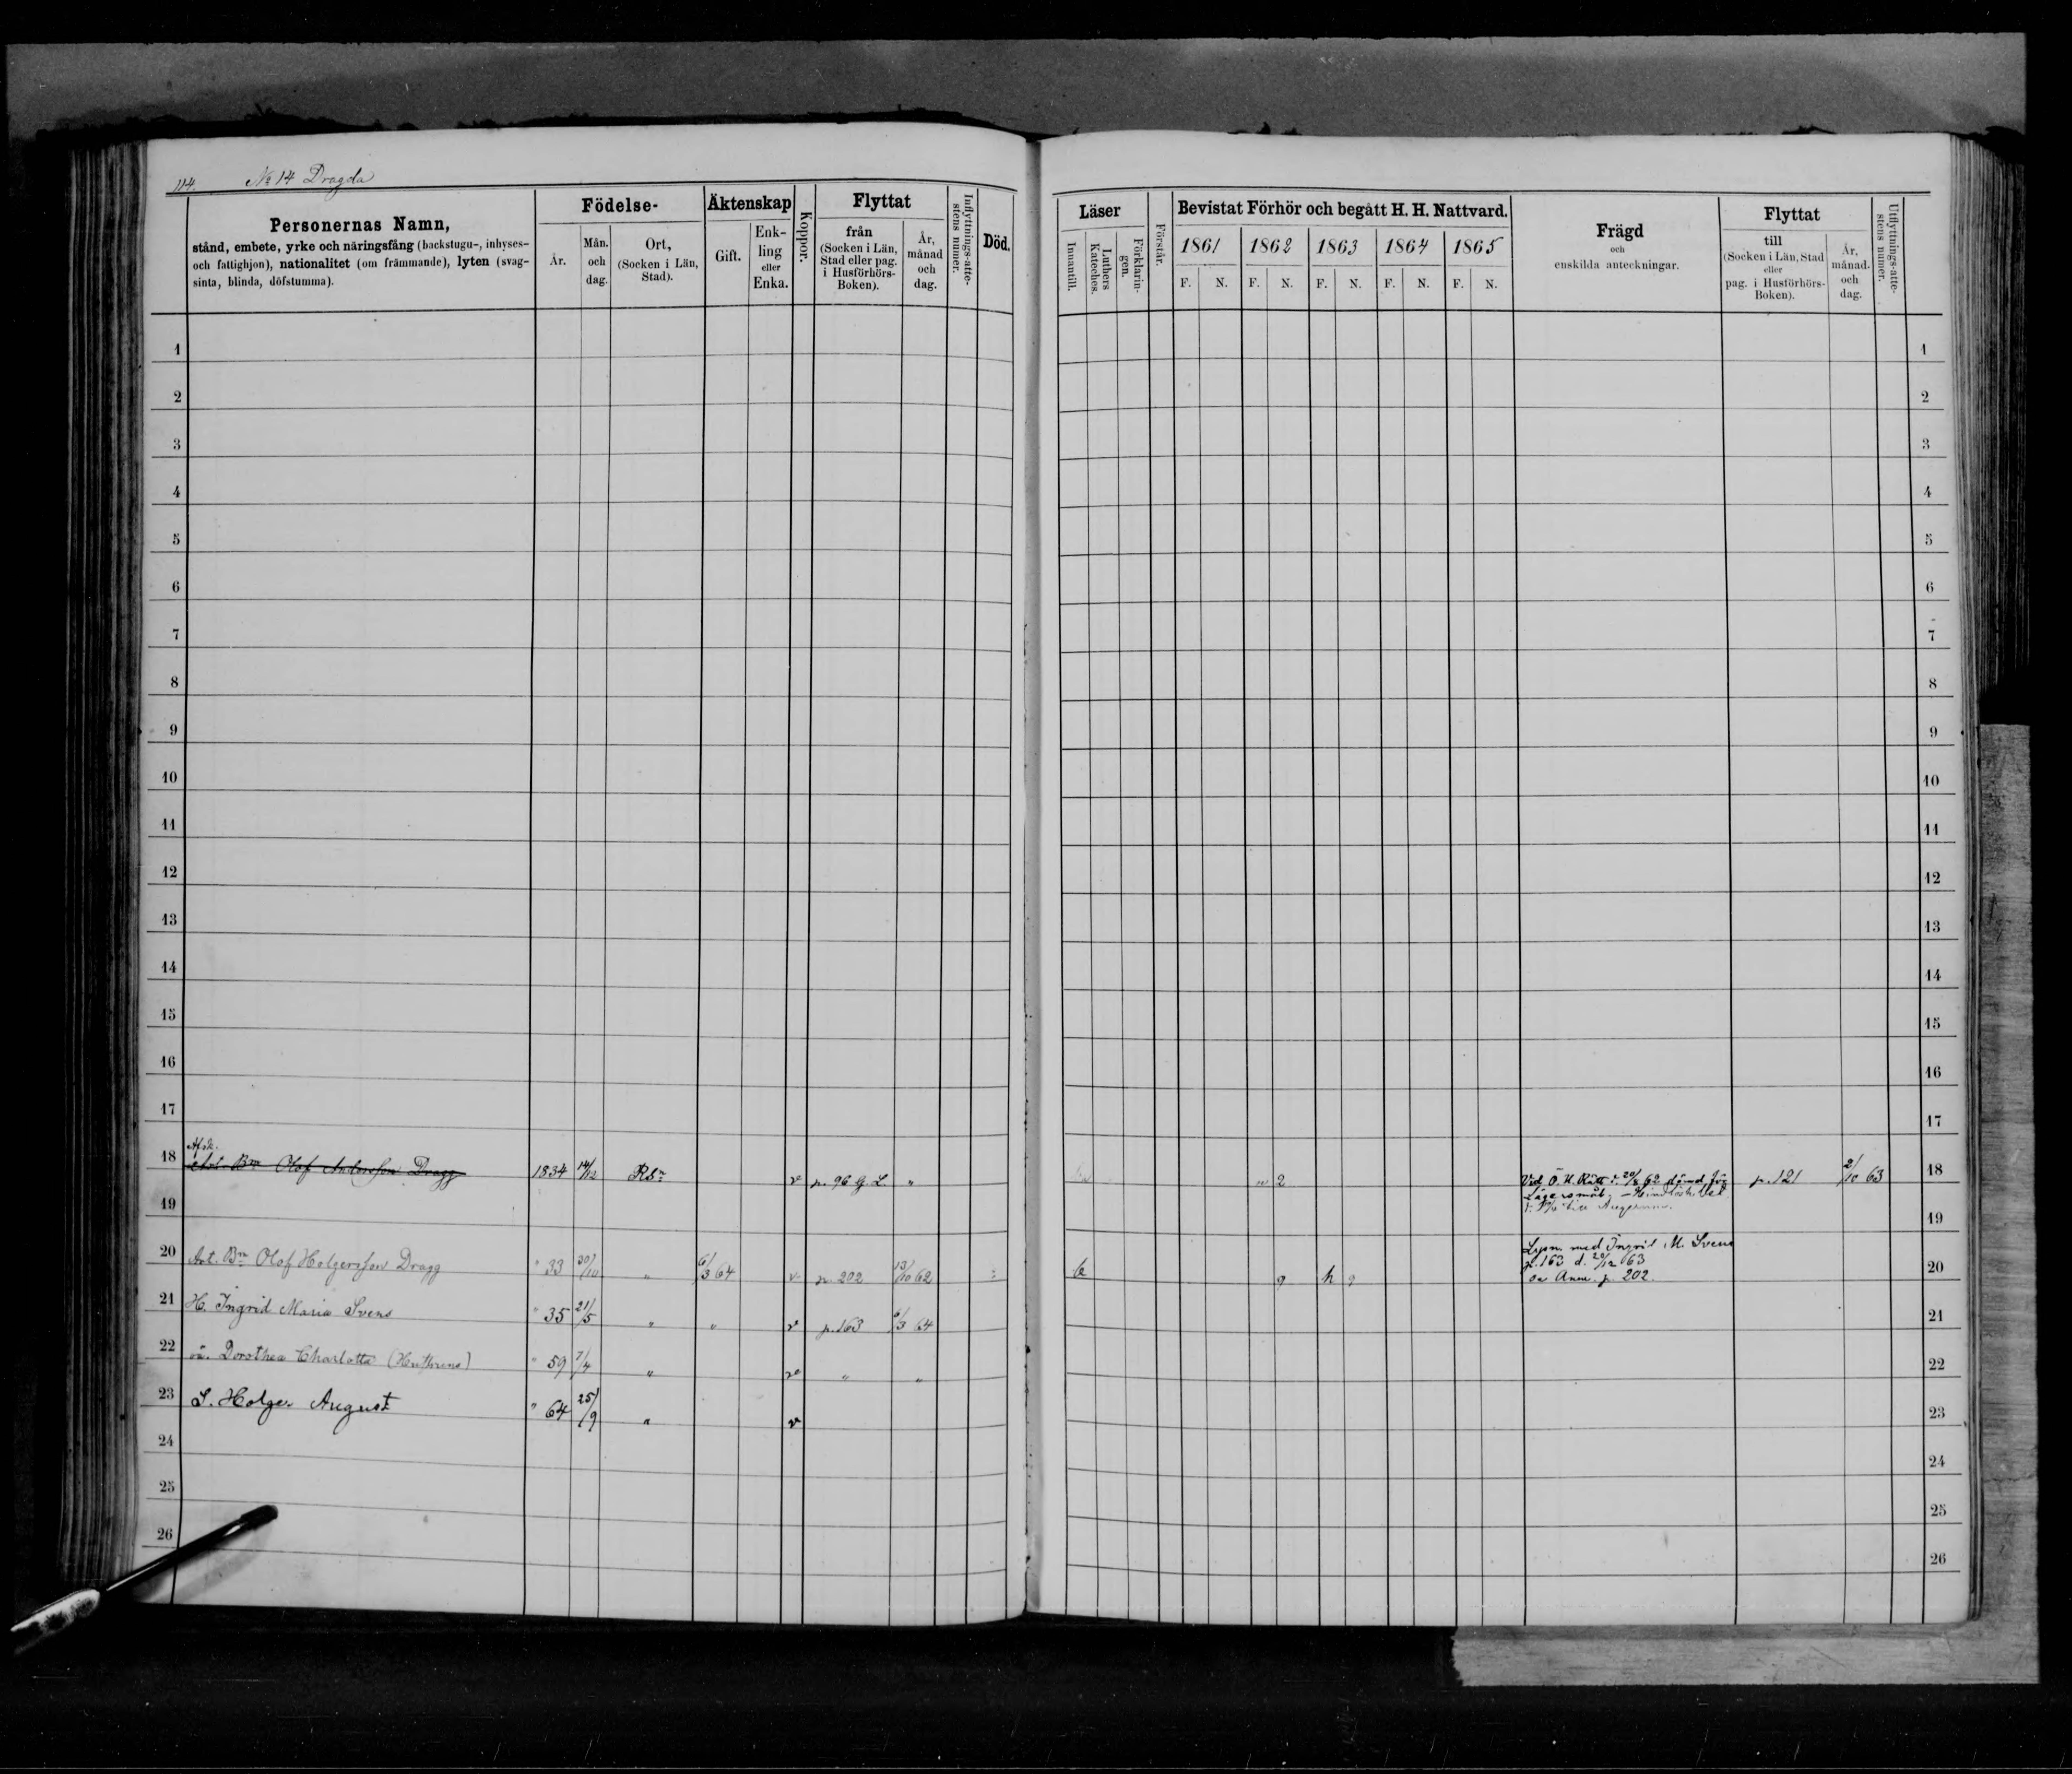 114. No 14 Dragda
Personernas Namn,
stånd, embete, yrke och näringsfång (backstugu-, inhyses-
och fattighjon), nationalitet (om främmande), lyten (svag-
sinta, blinda, döfstumma).
Födelse-
År.
Mån.
och
dag.
Ort,
(Socken i Län,
Stad).
Äktenskap
Gift.
Enk-
ling
eller
Enka.
Koppor.
Flyttat
från
(Socken i Län,
Stad eller pag.
i Husförhörs-
Boken).
År,
månad
och
dag.
Inflyttnings-atte-
stens numer.
Död.
Läser
Innantill.
Luthers
Kateches.
Förklarin-
gen.
Förstår.
Bevistat Förhör och begått H. H. Nattvard.
1861 1862 1863 1864 1865
F. N. F. N. F. N. F. N. F. N.
Frägd
och
enskilda anteckningar.
Flyttat
till
(Socken i Län, Stad
eller
pag. i Husförhörs-
Boken).
År,
månad.
och
dag.
Utflyttnings-atte-
stens numer.
1 1
2 2
3 3
4 4
5 5
6 6
7 7
8 8
9 9
10 10
11 11
12 12
13 13
14 14
15 15
16 16
17 17
Afsk.
18 Art. Bm Olof Andersson Dragg 1834 14/12 Rbn v p. 96 g L " 2 p. 121 2/10 63 18
Vid Ö. H. Rätt d. 20/8 62 dömd för
Lägersmål
19 19
20 Art. Bn Olof Holgersson Dragg " 33 30/10 " 6/3 64 v p. 202 13/10 62 b g h g 20
Lysn. med Ingrid M. Svens
p. 163 d. 20/12 63
se Anm. p. 202.
21 H. Ingrid Maria Svens " 35 21/5 " " v p. 163 6/3 64 21
22 oä. Dorothea Charlotta " 59 7/4 " v " " 22
23 S. Holger August " 64 25/9 " v 23
24 24
25 25
26 26